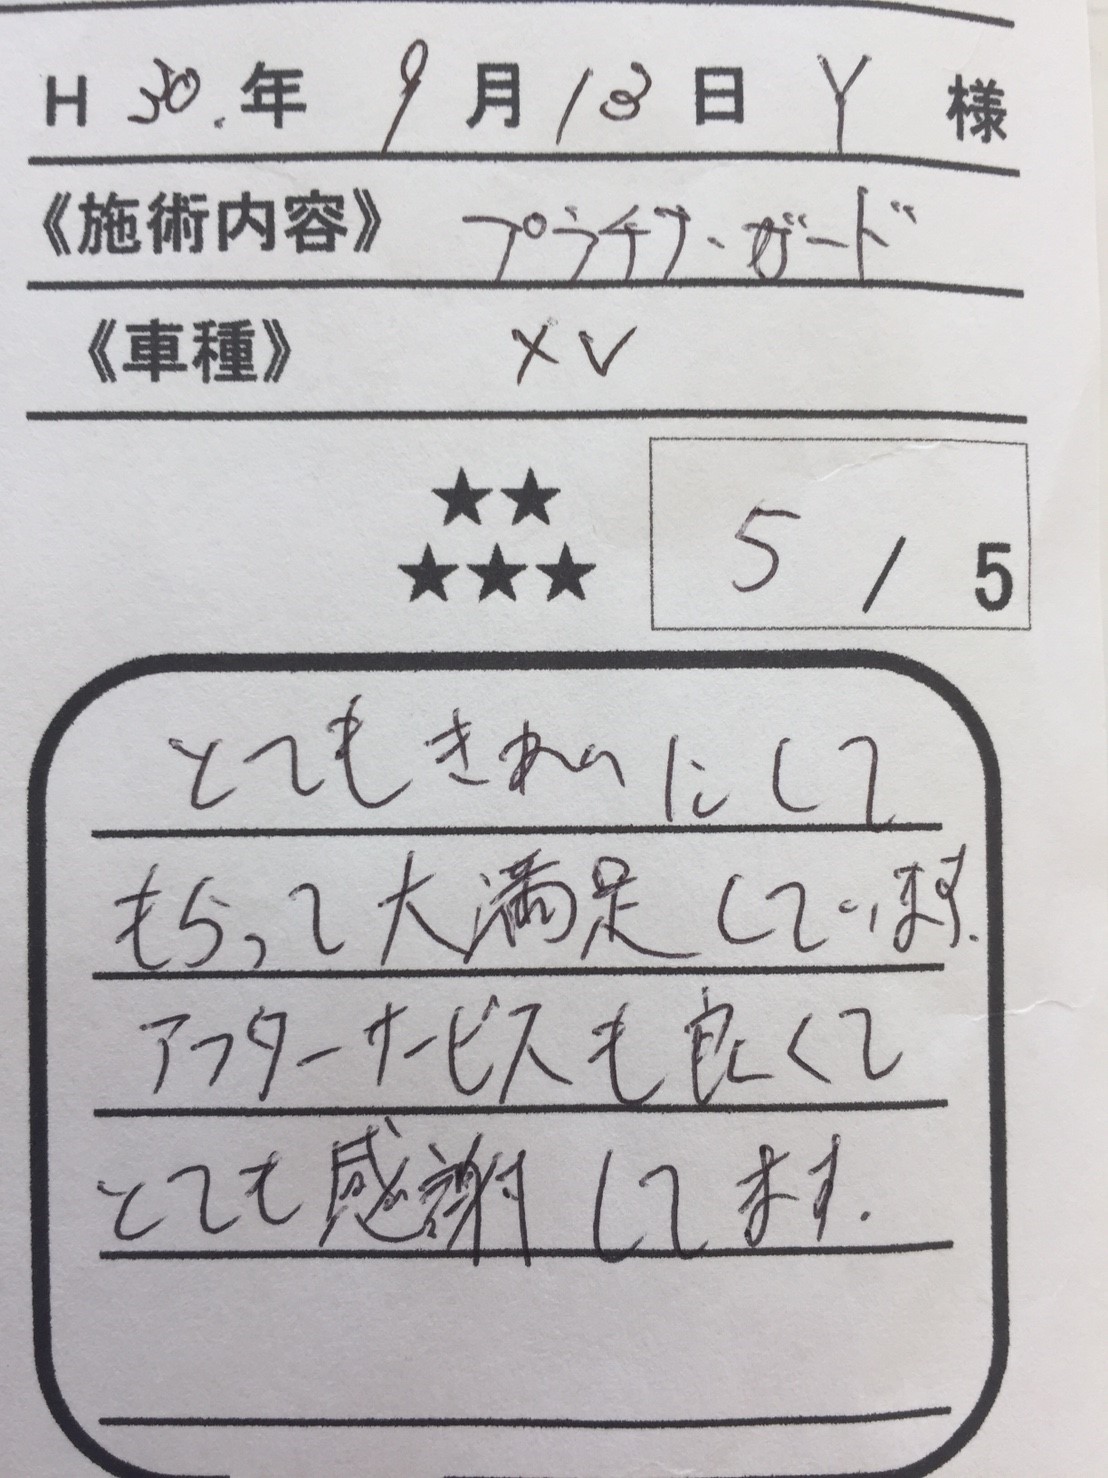 H 30.年 9月 13日 Y 様
《施術内容》 プラチナ・ガード
《車種》 XV
★★
★★★ 5 / 5
とてもきれいにして
もらって大満足しています.
アフターサービスも良くて
とても感謝してます.